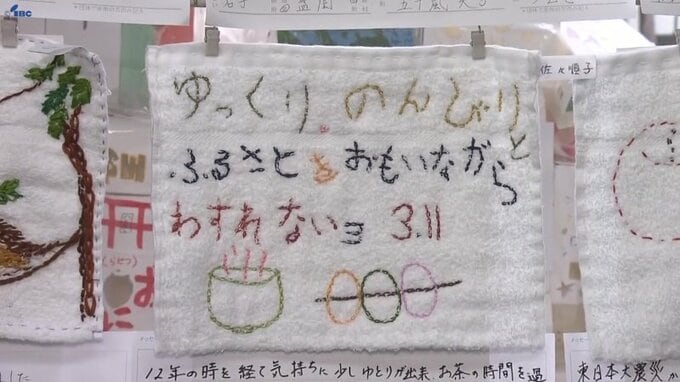 IBC
佐々順子
ゆっくり のんびりと
ふるさとをおもいながら
わすれないヨ 3.11
12年の時を経て気持ちに少しゆとりが出来、お茶の時間を過
東日本大震災か